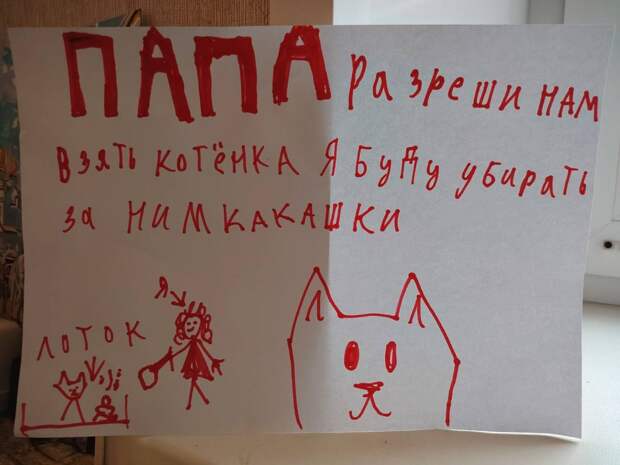 ПАПА разреши нам
взять котёнка я буду убирать
за ним какашки
я
лоток